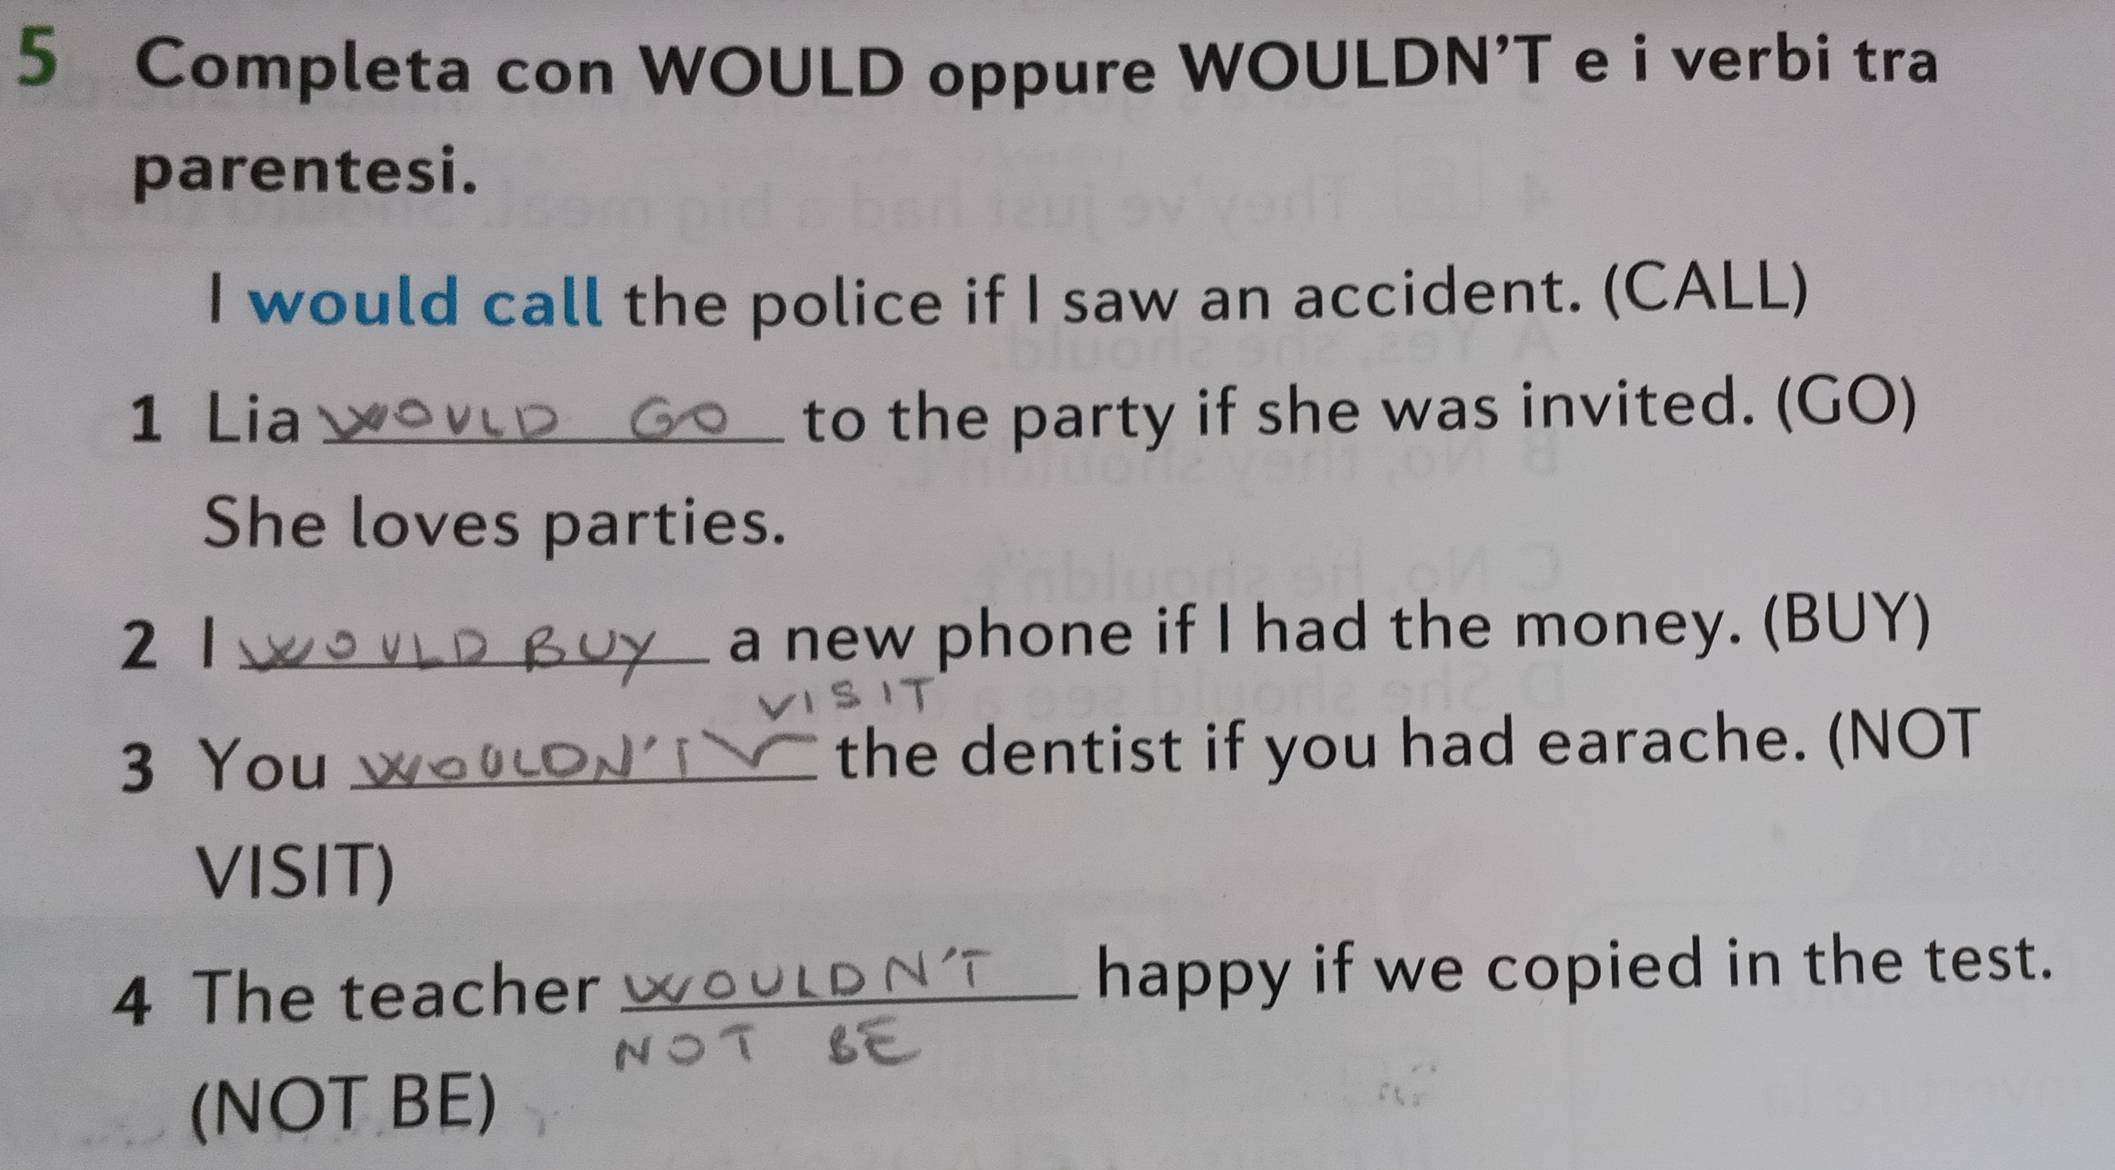 5 Completa con WOULD oppure WOULDN'T e i verbi tra
parentesi.
I would call the police if I saw an accident. (CALL)
1 Lia WOULD GO to the party if she was invited. (GO)
She loves parties.
2 I WOULD BUY a new phone if I had the money. (BUY)
VISIT
3 You WOULDN'T the dentist if you had earache. (NOT
VISIT)
4 The teacher WOULDN'T happy if we copied in the test.
NOT BE
(NOT BE)